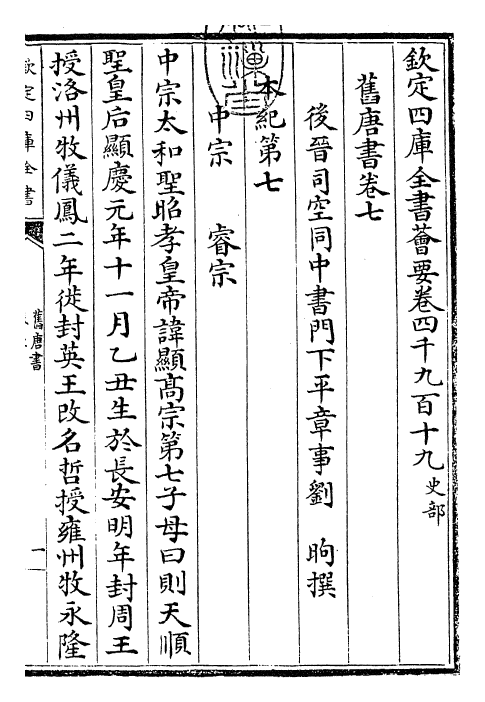 欽定四庫全書薈要卷四千九百十九 史部
舊唐書卷七
後晉司空同中書門下平章事劉 昫撰
本紀第七
中宗 睿宗
中宗太和聖昭孝皇帝諱顯高宗第七子母曰則天順
聖皇后顯慶元年十一月乙丑生於長安明年封周王
授洛州牧儀鳳二年徙封英王改名哲授雍州牧永隆
欽定四庫全書
舊唐書
一